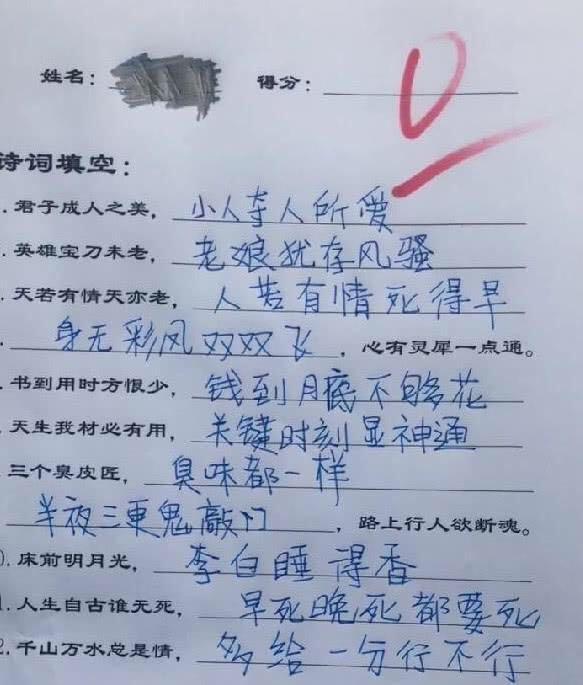 姓名： 得分： 0
诗词填空：
. 君子成人之美， 小人夺人所爱
. 英雄宝刀未老， 老娘犹存风骚
. 天若有情天亦老， 人若有情死得早
. 身无彩凤双双飞 ，心有灵犀一点通。
. 书到用时方恨少， 钱到月底不够花
. 天生我材必有用， 关键时刻显神通
三个臭皮匠， 臭味都一样
半夜三更鬼敲门 ，路上行人欲断魂。
). 床前明月光， 李白睡得香
1. 人生自古谁无死， 早死晚死都要死
2. 千山万水总是情， 多给一分行不行